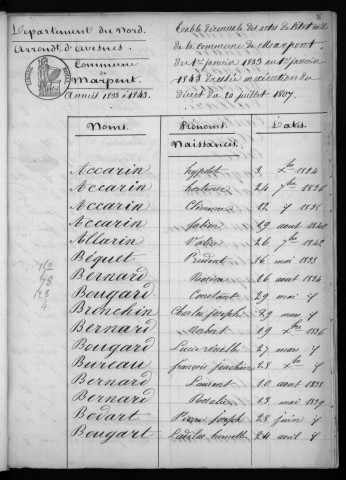 Département du Nord.
Arrondt d'avesnes
Commune
de
Marpent.
Années 1833 à 1843.
Table décennale des actes de l'état civil
de la commune de Marpent.
du 1er janvier 1833 au 1er janvier
1843 dressée en exécution du
décret du 20 juillet 1807.
Noms. Prénoms. Dates.
Naissances.
Accarin hypolite 3 xbre 1834
Accarin hortense 24 7bre 1836
Accarin Clémence 12 1838
Accarin fabien 19 aout 1840
Allarin Valérie 26 7bre 1842
Béguet Prudent 16 mai 1833
Bernard 26 aout 1834
Bougard Constant 29 mai
Bronchin Charles joseph
Bernard Norbert 19 xbre 1836
Bougard Lucie 27 mars
Bureau françois joachim 28 xbre
Bernard Laurent 10 aout 1838
Bernard Rosalie 13 mai 1839
Bodart Pierre joseph 28 juin
Bougart 24 avril
152
78
178
4